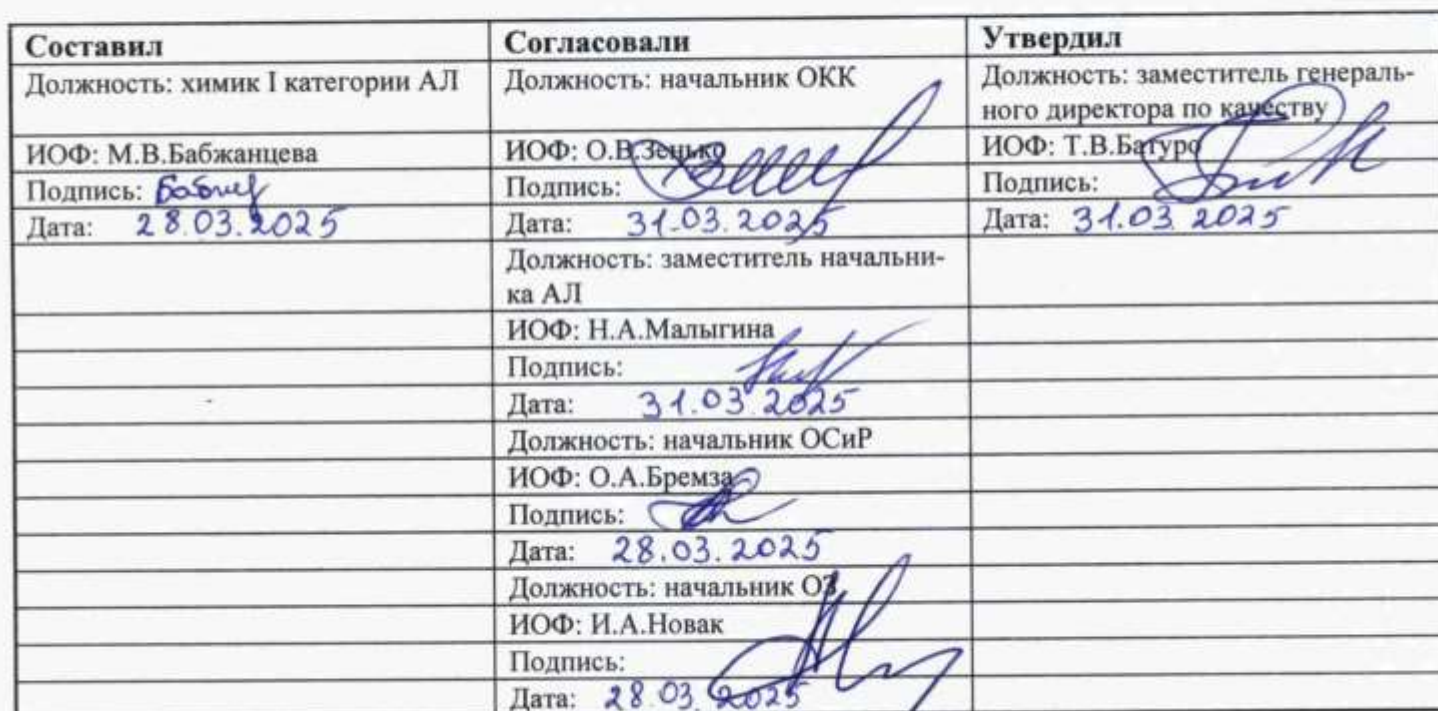 Составил Согласовали Утвердил
Должность: химик I категории АЛ Должность: начальник ОКК Должность: заместитель генераль-
ного директора по качеству
ИОФ: М.В.Бабжанцева ИОФ: О.В.Зенько ИОФ: Т.В.Батуро
Подпись: Подпись: Подпись:
Дата: 28.03.2025 Дата: 31.03.2025 Дата: 31.03.2025
Должность: заместитель начальни-
ка АЛ
ИОФ: Н.А.Малыгина
Подпись:
Дата: 31.03.2025
Должность: начальник ОСиР
ИОФ: О.А.Бремза
Подпись:
Дата: 28.03.2025
Должность: начальник ОЗ
ИОФ: И.А.Новак
Подпись:
Дата: 28.03.2025